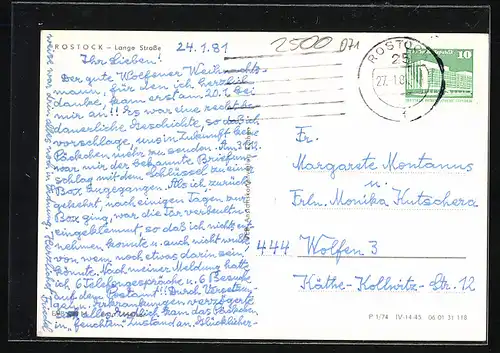 ROSTOCK – Lange Straße
24.1.81
2500 D71
ROSTOCK
25
27.-1.8
10
Ihr Lieben!
Der gute Wolfener Weihnachts-
mann, für den ich herzlich
danke, kam erst am 20.1. bei
mir an!! Es war eine recht be-
dauerliche Geschichte, so daß ich
vorschlage, uns in Zukunft keine
Päckchen mehr zu senden. Am 31.12.
war mir der bekannte Briefum-
schlag mit dem Schlüssel zu einer
Box zugegangen. Als ich, zurück-
gekehrt, nach einigen Tagen zur
Box ging, war die Tür verbeult u.
eingeklemmt, so daß ich nichts ent-
nehmen konnte u. auch nicht wußte,
von wem, noch etwas darin sein
könnte. Nach meiner Meldung hatte
ich 6 Telefongespräche u. 6 Besuche
auf dem Postamt!! Durch
erkrankungen verzögerte
alles. Endlich kam das Päckchen
in „feuchtem“ Zustand an. Glücklicher-
weise war dem alles noch in Ordnung. Herzliche Grüße
Fr.
Margarete Montanus
u.
Frln. Monika Kutschera
444 Wolfen 3
Käthe-Kollwitz-Str. 12
P 1/74 IV-14-45 06 01 31 118